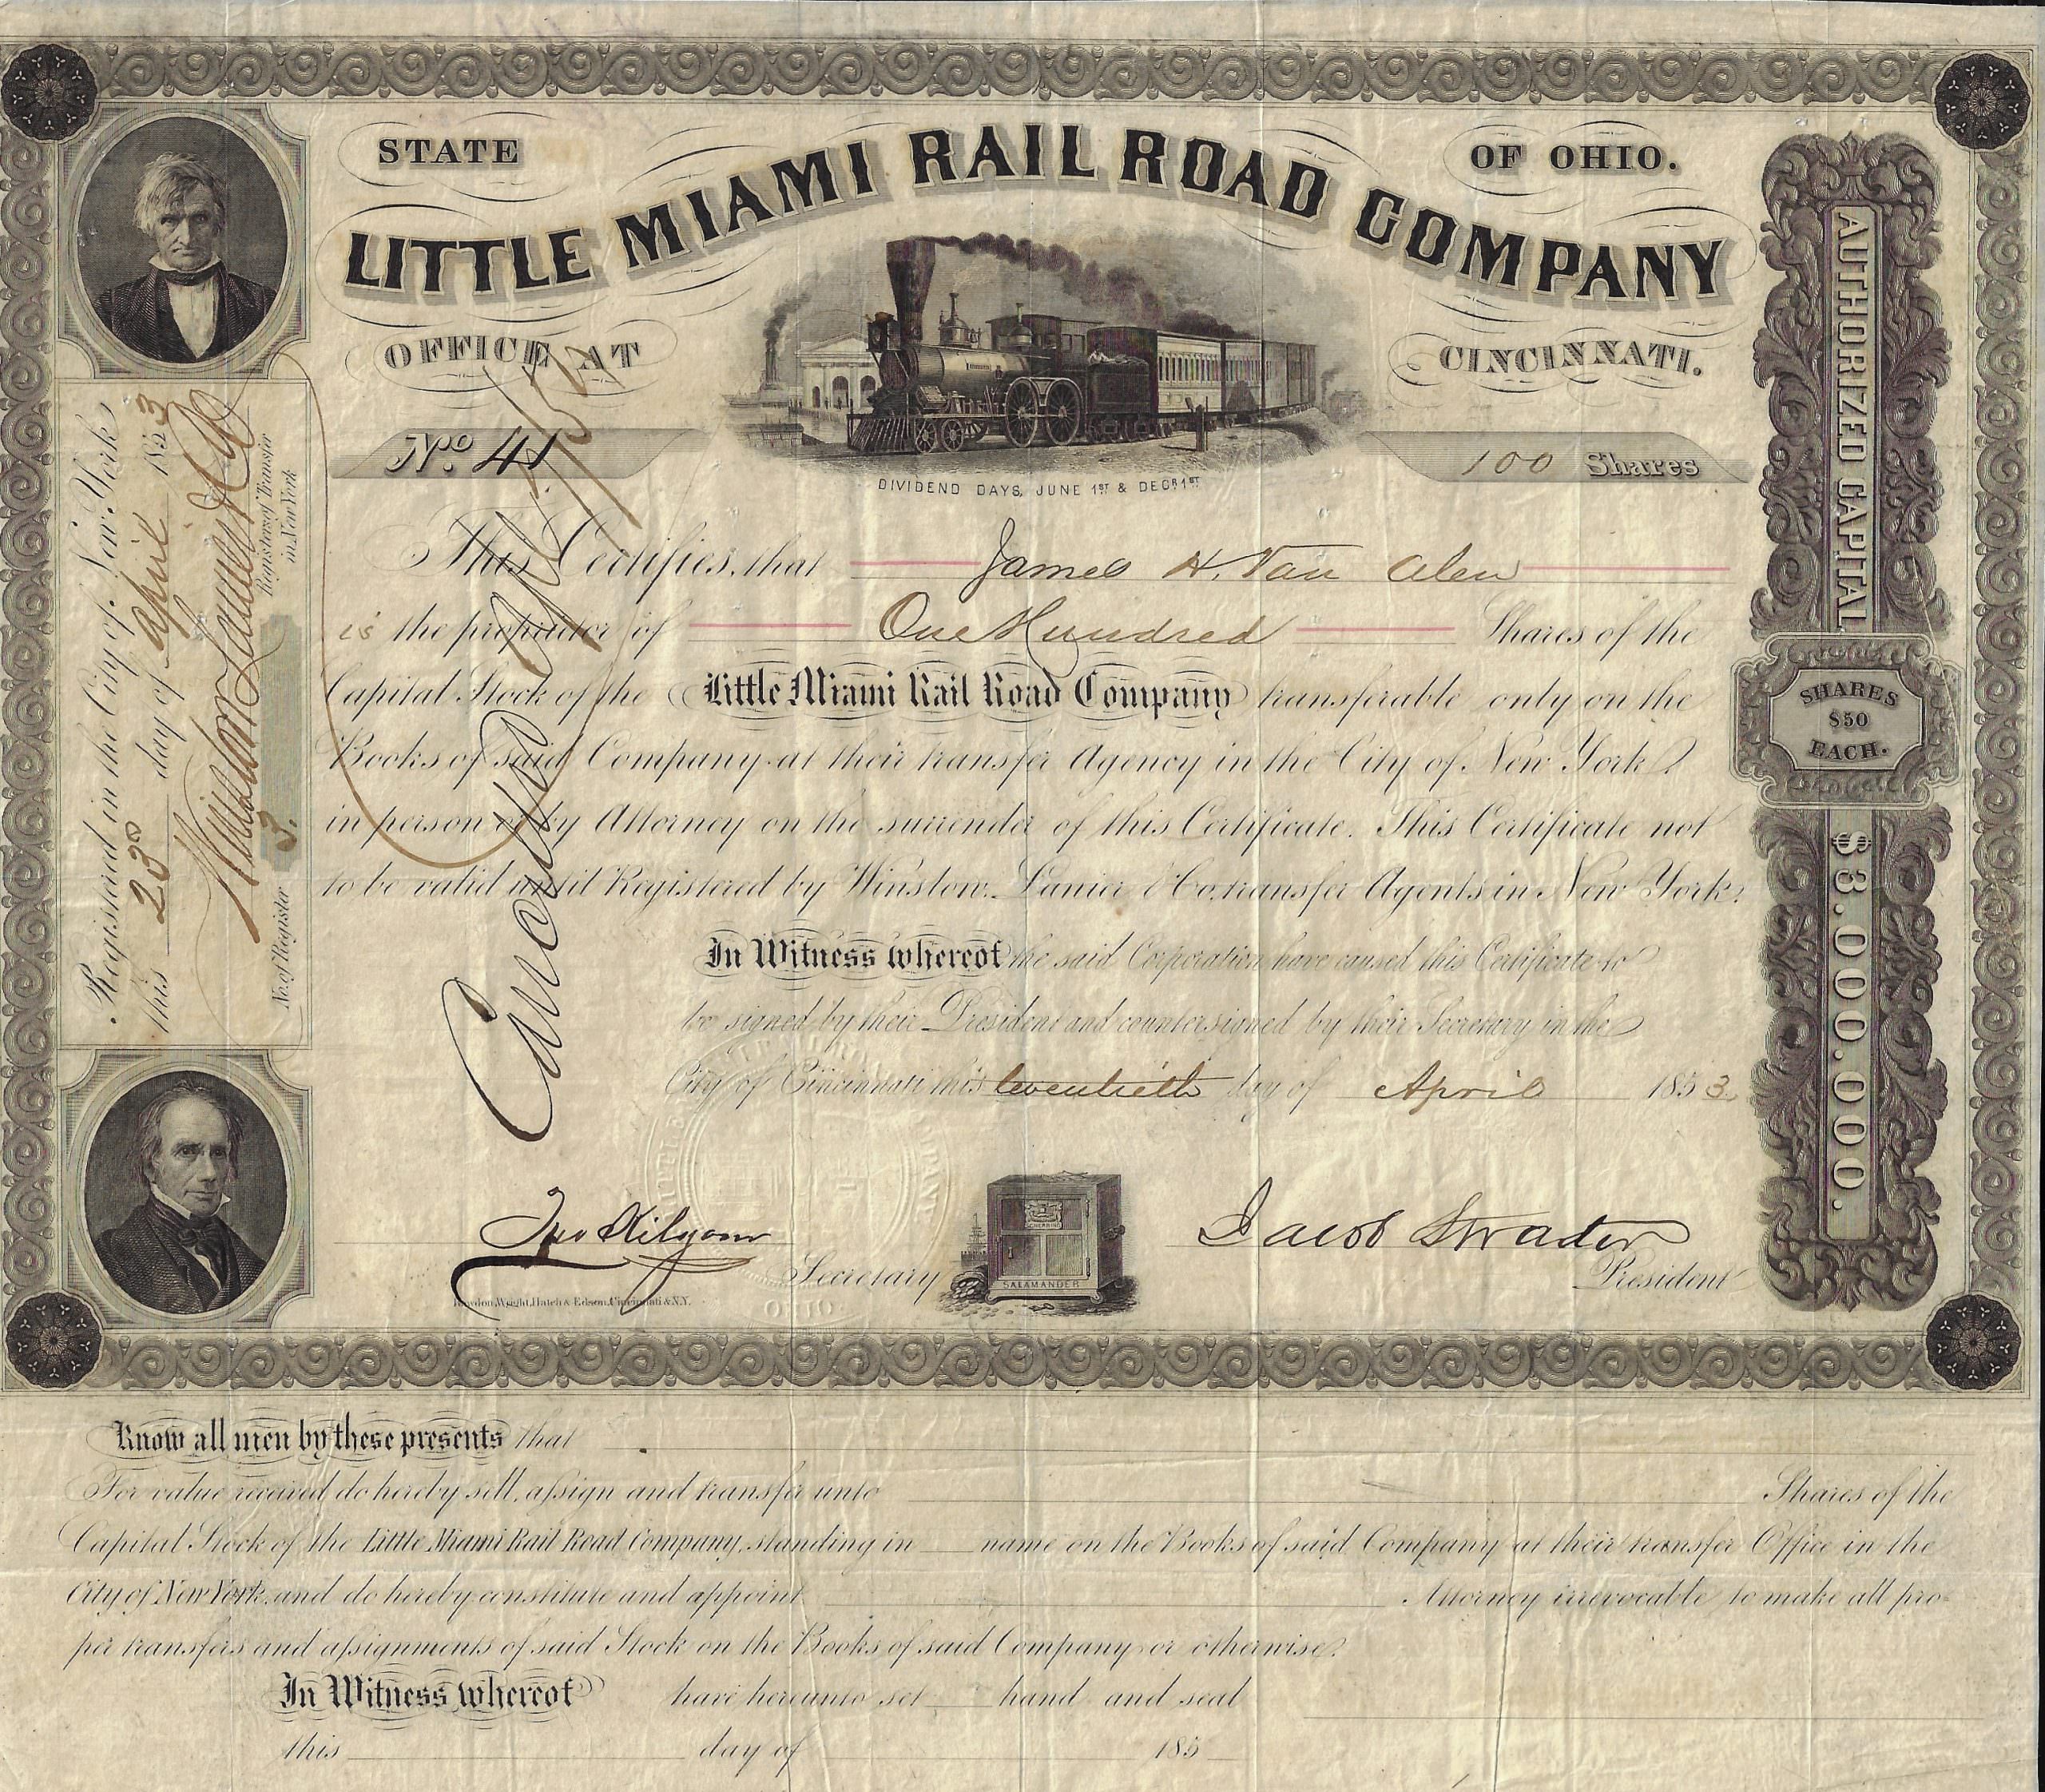 STATE OF OHIO.
LITTLE MIAMI RAIL ROAD COMPANY
OFFICE AT CINCINNATI.
No. 41
100 Shares
DIVIDEND DAYS, JUNE 1ST & DECR 1ST
This Certifies, that James H. Van Alen
is the proprietor of One Hundred Shares of the
Capital Stock of the Little Miami Rail Road Company transferable only on the
Books of said Company at their transfer Agency in the City of New York,
in person or by Attorney on the surrender of this Certificate. This Certificate not
to be valid until Registered by Winslow, Lanier & Co. transfer Agents in New York.
In Witness whereof the said Corporation have caused this Certificate to
be signed by their President and countersigned by their Secretary in the
City of Cincinnati this twentieth day of April 1853
Jno Kilgour
Secretary
Jacob Strader
President
SALAMANDER
Rawdon, Wright, Hatch & Edson, Cincinnati & N.Y.
OHIO
Cancelled
Registered in the City of New York
this 23rd day of April 1853
Winslow Lanier & Co
Register of Transfer
in New York
No. of Register 3.
AUTHORIZED CAPITAL
SHARES
$50
EACH.
$3.000.000.
Know all men by these presents that
For value received do hereby sell, assign and transfer unto Shares of the
Capital Stock of the Little Miami Rail Road Company, standing in name on the Books of said Company at their transfer Office in the
City of New York, and do hereby constitute and appoint Attorney irrevocable to make all pro-
per transfers and assignments of said Stock on the Books of said Company or otherwise.
In Witness whereof have hereunto set hand and seal
this day of 185